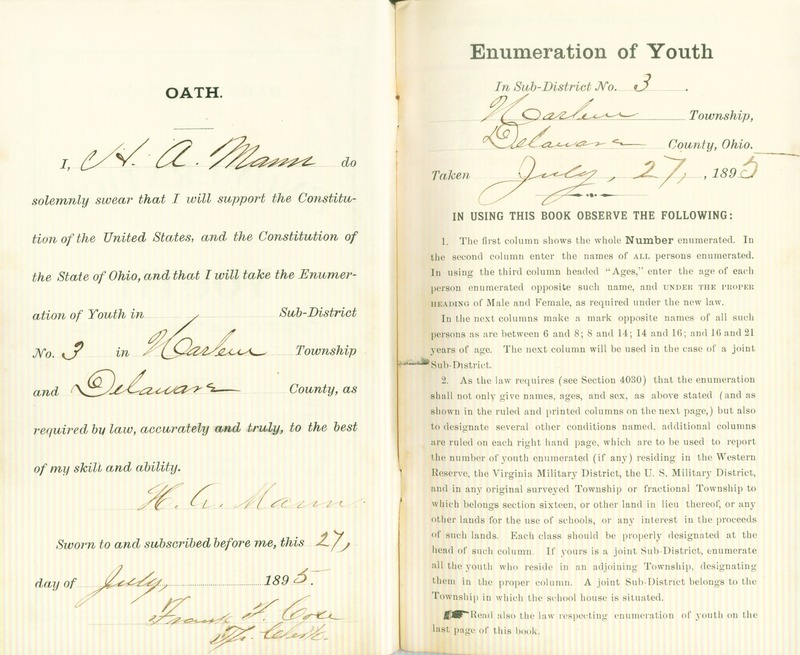 OATH.
I, H. A. Mann do
solemnly swear that I will support the Constitu-
tion of the United States, and the Constitution of
the State of Ohio, and that I will take the Enumer-
ation of Youth in Sub-District
No. 3 in Harlem Township
and Delaware County, as
required by law, accurately and truly, to the best
of my skill and ability.
H. A. Mann
Sworn to and subscribed before me, this 27,
day of July, 1895.
Frank F.
Tp. Clerk.
Enumeration of Youth
In Sub-District No. 3.
Harlem Township,
Delaware County, Ohio.
Taken July, 27, , 1895
IN USING THIS BOOK OBSERVE THE FOLLOWING:
1. The first column shows the whole Number enumerated. In
the second column enter the names of ALL persons enumerated.
In using the third column headed "Ages," enter the age of each
person enumerated opposite such name, and UNDER THE PROPER
HEADING of Male and Female, as required under the new law.
In the next columns make a mark opposite names of all such
persons as are between 6 and 8; 8 and 14; 14 and 16; and 16 and 21
years of age. The next column will be used in the case of a joint
Sub-District.
2. As the law requires (see Section 4030) that the enumeration
shall not only give names, ages, and sex, as above stated (and as
shown in the ruled and printed columns on the next page,) but also
to designate several other conditions named, additional columns
are ruled on each right hand page, which are to be used to report
the number of youth enumerated (if any) residing in the Western
Reserve, the Virginia Military District, the U. S. Military District,
and in any original surveyed Township or fractional Township to
which belongs section sixteen, or other land in lieu thereof, or any
other lands for the use of schools, or any interest in the proceeds
of such lands. Each class should be properly designated at the
head of such column. If yours is a joint Sub-District, enumerate
all the youth who reside in an adjoining Township, designating
them in the proper column. A joint Sub-District belongs to the
Township in which the school house is situated.
Read also the law respecting enumeration of youth on the
last page of this book.